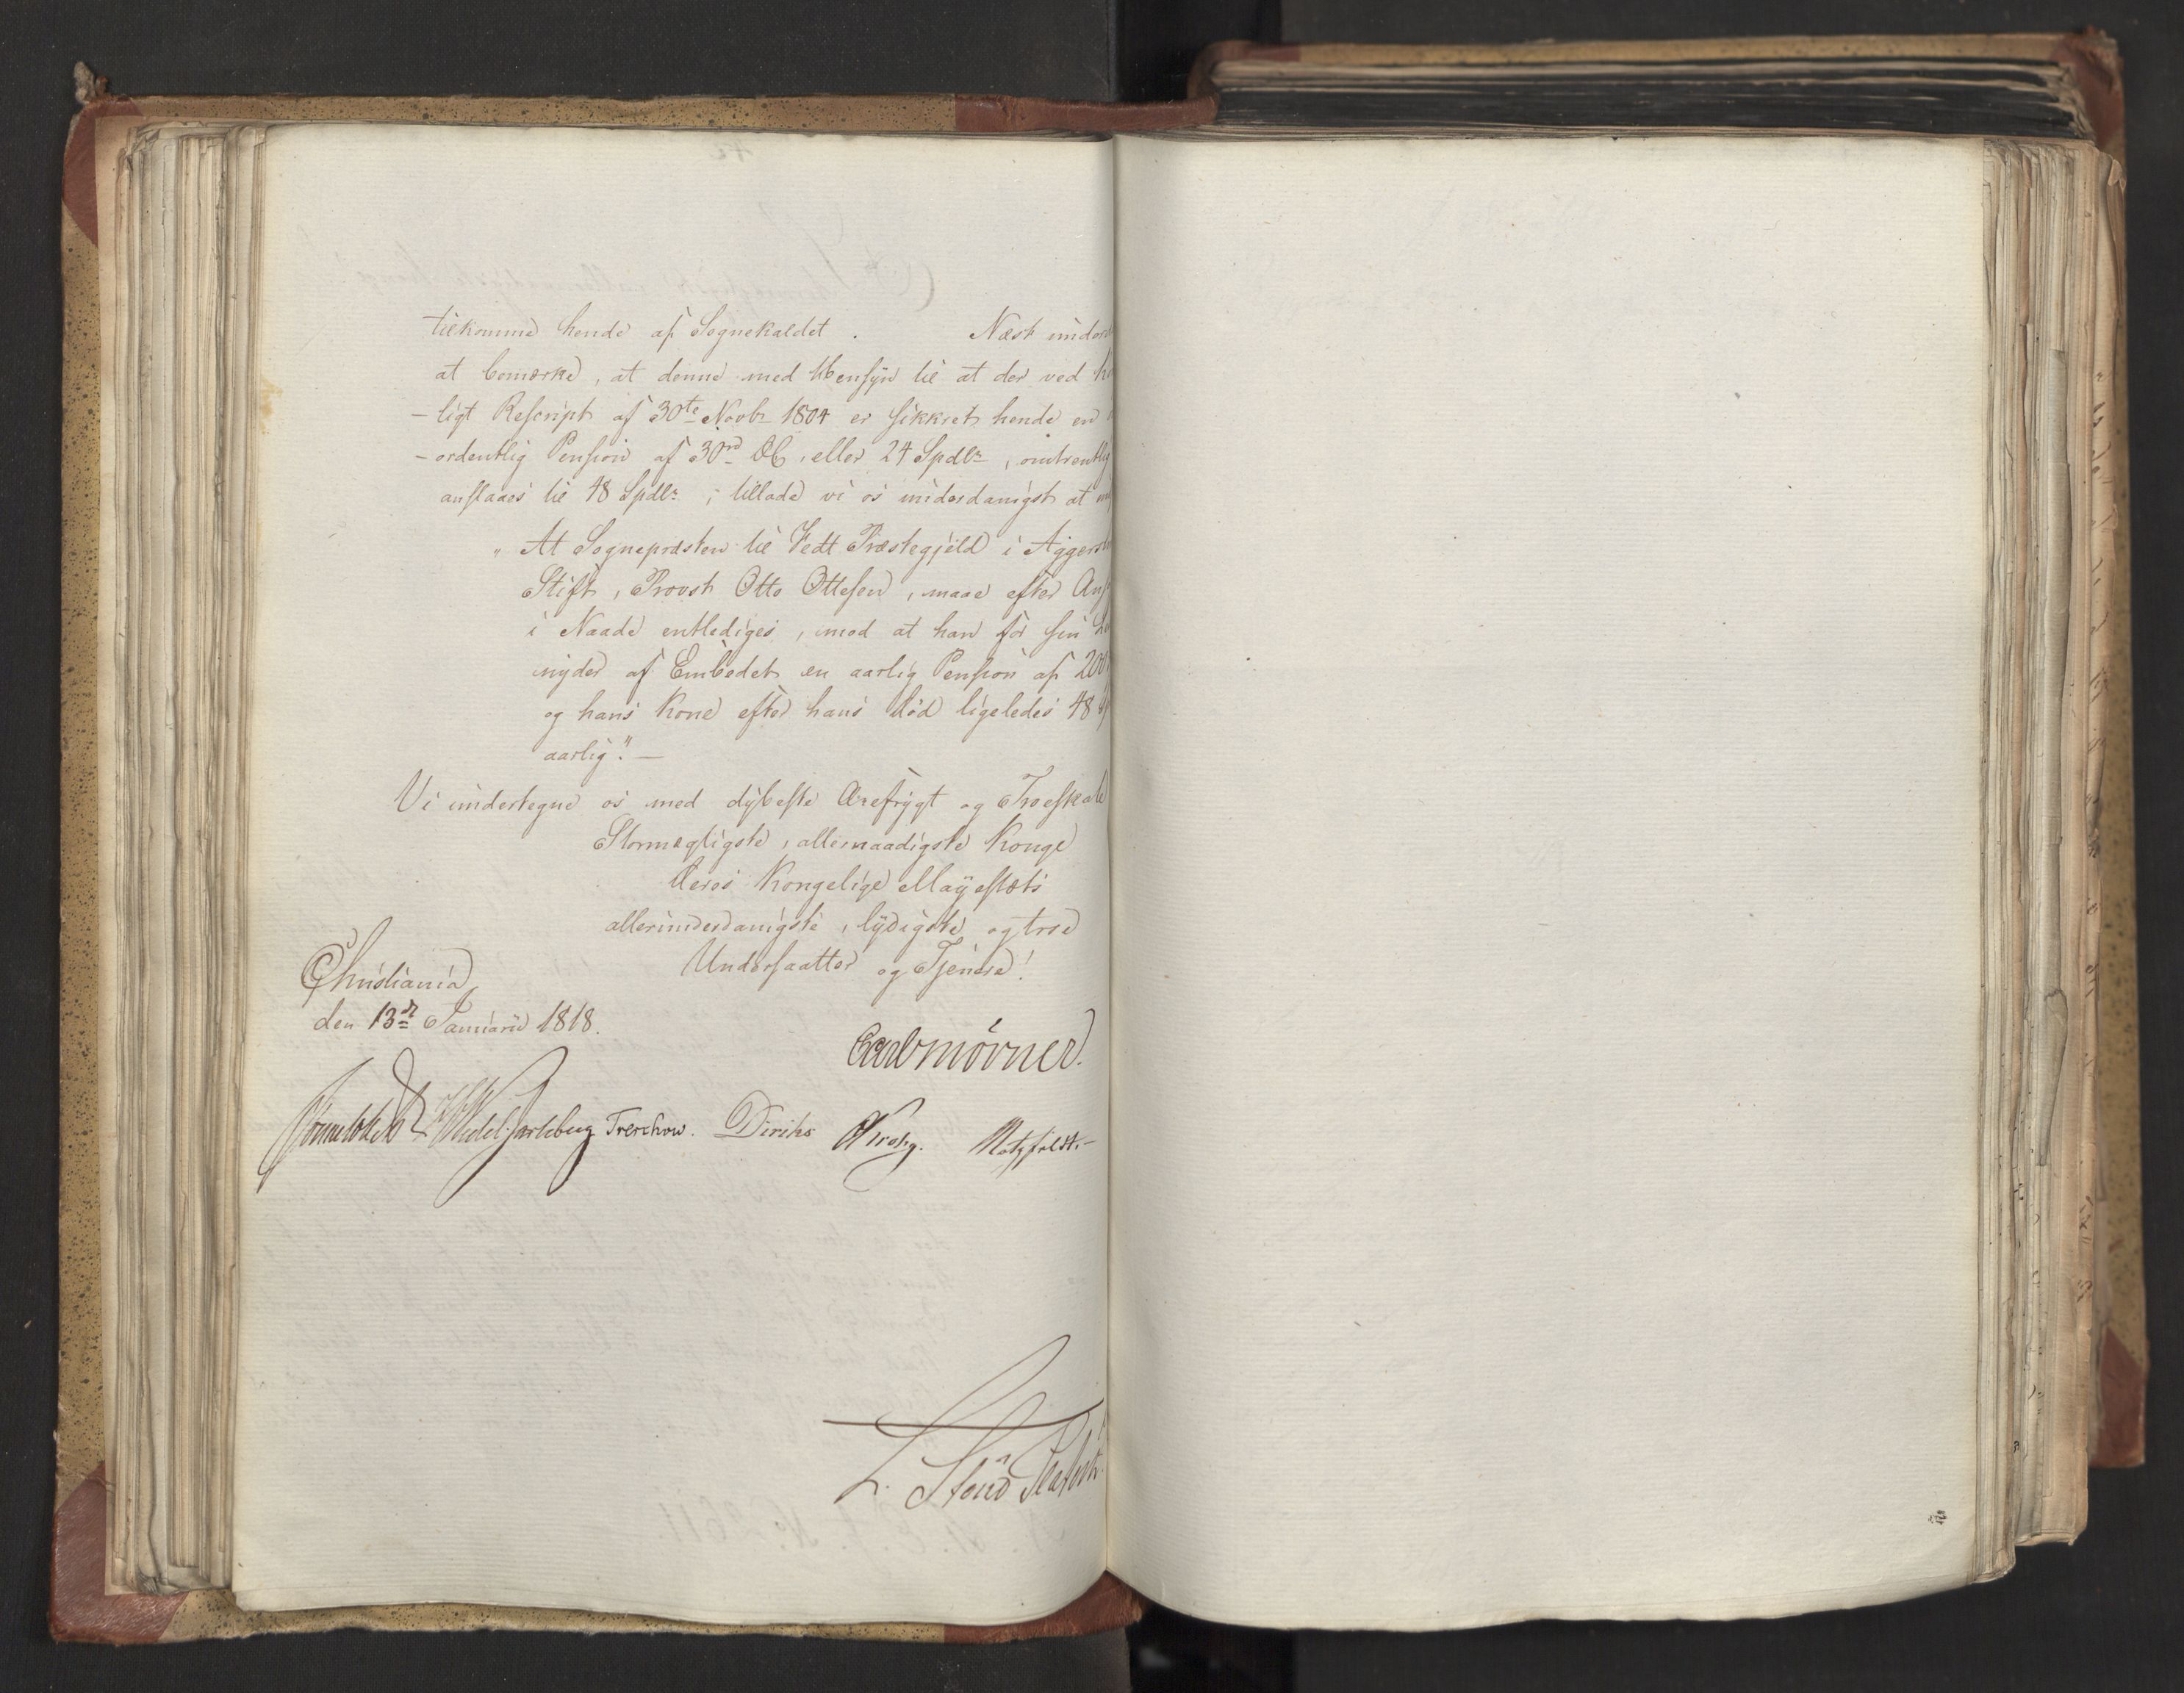 tilkomme hende af Sognekaldet . Næst under
at bemærke, at denne med Hensyn til at der ved
-ligt Rescript af 30te Novbr 1804 er sikkret hende en
-ordentlig Pension af 30rd DC, eller 24 Spdlr, omtrentlig
anslaaes til 48 Spdlr; tillade vi os underdanigst at
"At Sognepræsten til Vedt Præstegjeld i Agger
Stift, Provst Otto Ottesen, maae efter Ans
i Naade entlediges, mod at han for sin
nyder af Embedet en aarlig Pension af 200
og hans Kone efter hans Død ligeledes 48
aarlig". —
Vi undertegne os med dybeste Ærefrygt og Troeskab
Stormægtigste, allernaadigste Konge
Deres Kongelige Mayestæts
allerunderdanigste, lydigste og troe
Undersaatter og Tjenere!
Christiania
den 13de Januarii 1818.
Carl Mörner.
Sommerhielm Wedel Jarlsberg Treschow. Diriks Krohg. Motzfeldt.
L. Stoud Platou